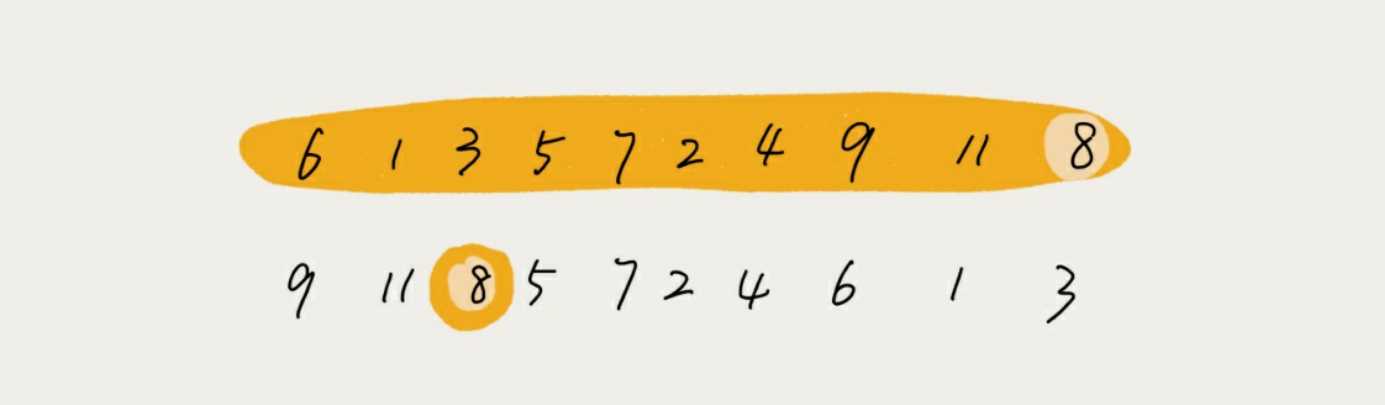 6 1 3 5 7 2 4 9 11 8
9 11 8 5 7 2 4 6 1 3